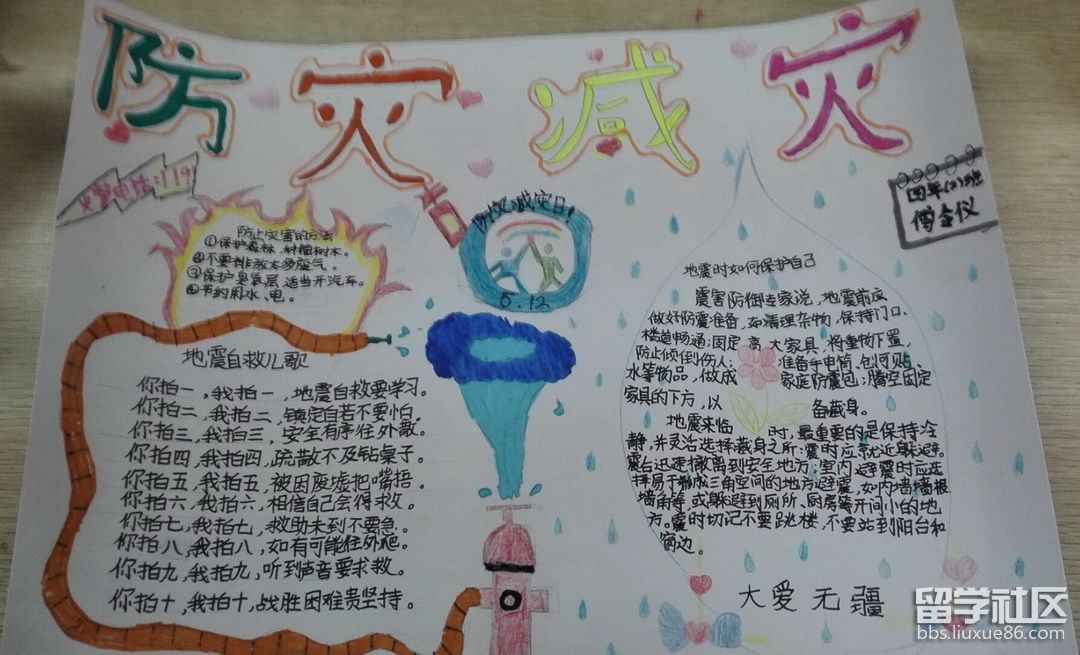 防灾减灾
火警电话:119
四年(2)班
傅全仪
防灾减灾日!
5.12
防止灾害的方法
①保护森林,种植树木。
②不要排放太多废气。
③保护臭氧层,适当开汽车。
④节约用水、电。
地震自救儿歌
你拍一,我拍一,地震自救要学习。
你拍二,我拍二,镇定自若不要怕。
你拍三,我拍三,安全有序往外散。
你拍四,我拍四,疏散不及钻桌子。
你拍五,我拍五,被困废墟把嘴捂。
你拍六,我拍六,相信自己会得救。
你拍七,我拍七,救助未到不要急。
你拍八,我拍八,如有可能往外爬。
你拍九,我拍九,听到声音要求救。
你拍十,我拍十,战胜困难贵坚持。
地震时如何保护自己
震害防御专家说,地震前应
做好防震准备,如清理杂物,保持门口、
楼道畅通;固定高大家具,将重物下置,
防止倾倒伤人;准备手电筒、创可贴
水等物品,做成家庭防震包;腾空固定
家具的下方,以备藏身。
地震来临时,最重要的是保持冷
静,并灵活选择藏身之所:震时应就近躲避。
震后迅速撤离到安全地方;室内避震时应选
择易于形成三角空间的地方避震,如内墙墙根
墙角等,或躲避到厕所、厨房等开间小的地
方。震时切记不要跳楼,不要站到阳台和
窗边。
大爱无疆
留学社区
bbs.liuxue86.com